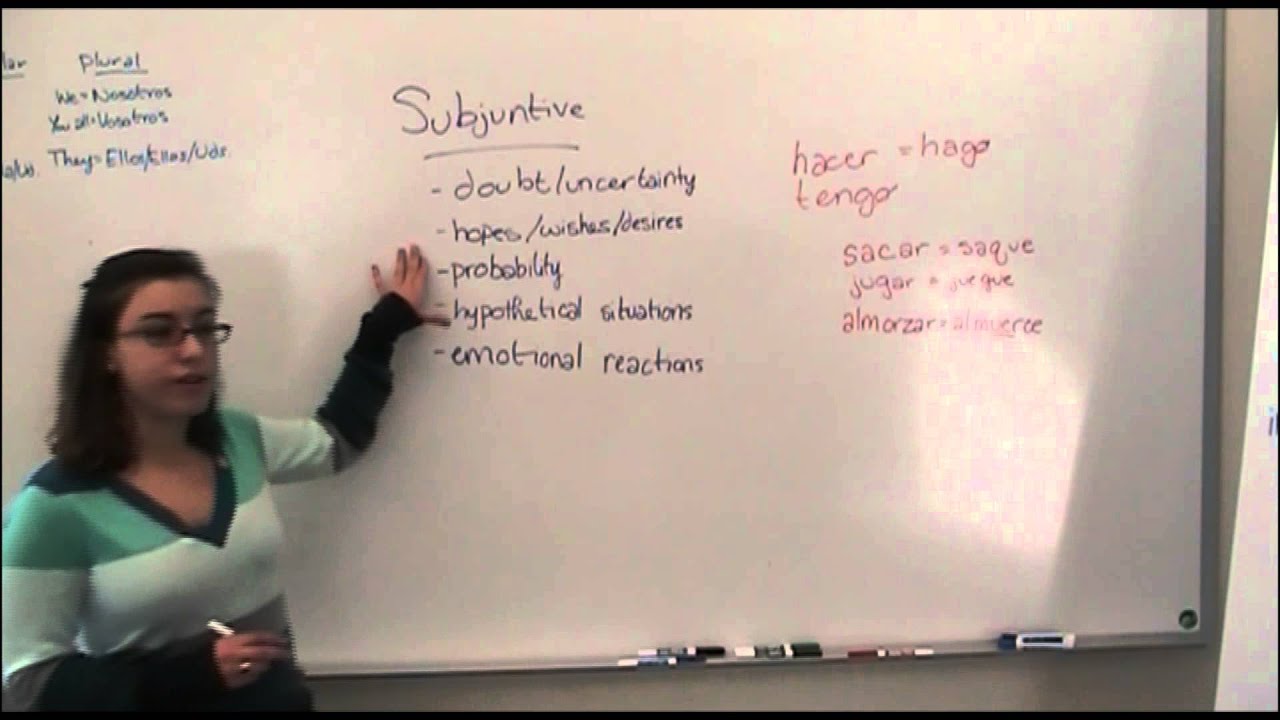 Plural
We = Nosotros
You all = Vosotros
They = Ellos/Ellas/Uds.
Subjuntive
- doubt/uncertainty
- hopes/wishes/desires
- probability
- hypothetical situations
- emotional reactions
hacer = hago
tengo
sacar = saque
jugar = juegue
almorzar = almuerce